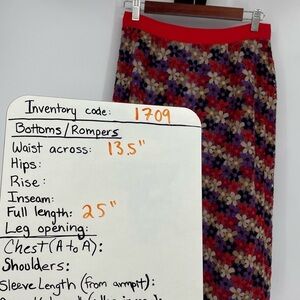 Inventory code: 1709
Bottoms/Rompers
Waist across: 13.5"
Hips:
Rise:
Inseam:
Full length: 25"
Leg opening:
Chest (A to A):
Shoulders:
Sleeve Length (from armpit):